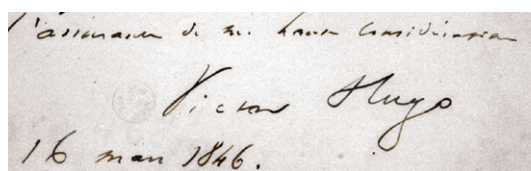 l'assurance de ma haute considération
Victor Hugo
16 mars 1846.